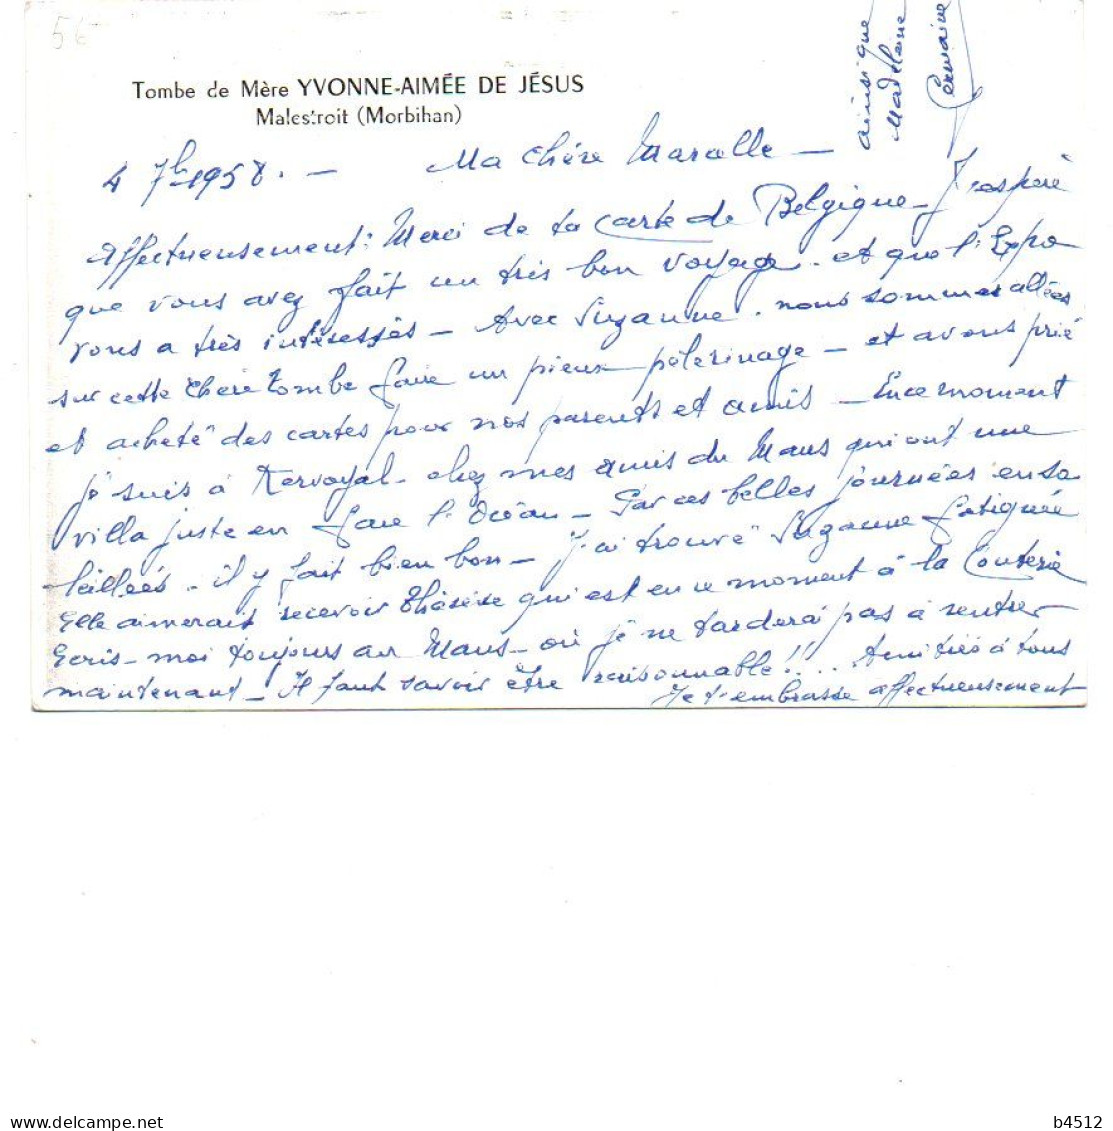 56
Tombe de Mère YVONNE-AIMÉE DE JÉSUS
Malestroit (Morbihan)
4 7bre 1958. — Ma chère Marcelle —
Affectueusement: Merci de ta carte de Belgique — J'espère
que vous avez fait un très bon voyage. et que l'Expo
vous a très intéressés — Avec Suzanne. nous sommes allées
sur cette chère tombe faire un pieux pélerinage — et avons prié
et acheté des cartes pour nos parents et amis — En ce moment
je suis à Kervoyal chez mes amis du Mans qui ont une
villa juste en face l'Océan — Par ces belles journées ensoleillées — il y fait bien bon — J'ai trouvé Suzanne fatiguée
Elle aimerait recevoir Thérèse qui est en ce moment à la
Ecris-moi toujours au Mans — où je ne tarderai pas à rentrer
maintenant — Il faut savoir être raisonnable!!... Amitiés à tous
Je t'embrasse affectueusement
ainsi que
Madeleine
Germaine
delcampe.net
b4512